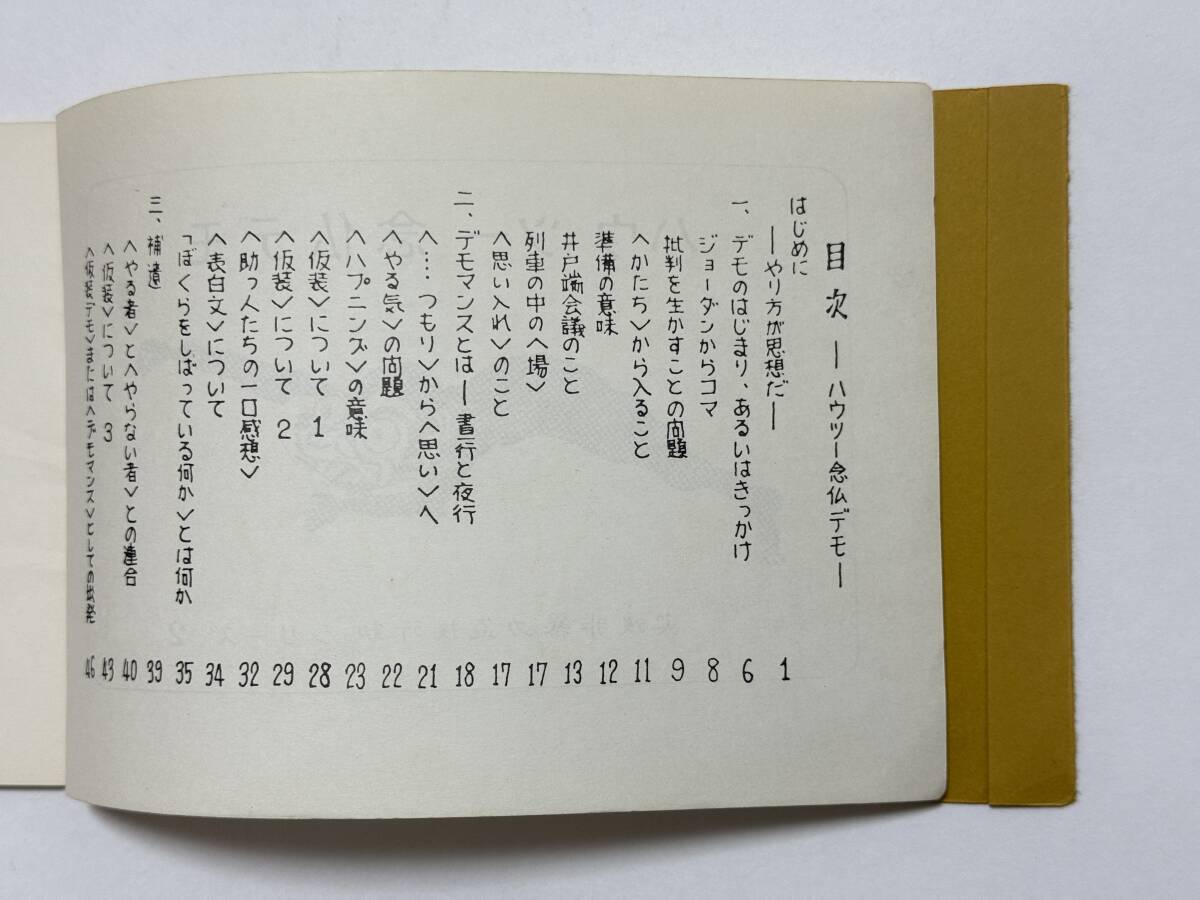 目次 ――ハウツー念仏デモ――
はじめに
――やり方が思想だ―― 1
一、デモのはじまり、あるいはきっかけ 6
ジョーダンからコマ 8
批判を生かすことの問題 9
〈かたち〉から入ること 11
準備の意味 12
井戸端会議のこと 13
列車の中の〈場〉 17
〈思い入れ〉のこと 17
二、デモマンスとは――昼行と夜行 18
〈‥‥つもり〉から〈思い〉へ 21
〈やる気〉の問題 22
〈ハプニンズ〉の意味 23
〈仮装〉について 1 28
〈仮装〉について 2 29
〈助っ人たちの一口感想〉 32
〈表白文〉について 34
「ぼくらをしばっている何か〉とは何か 35
三、補遺 39
〈やる者〉と〈やらない者〉との連合 40
〈仮装〉について 3 43
〈仮装デモ〉または〈デモマンス〉としての出発 46